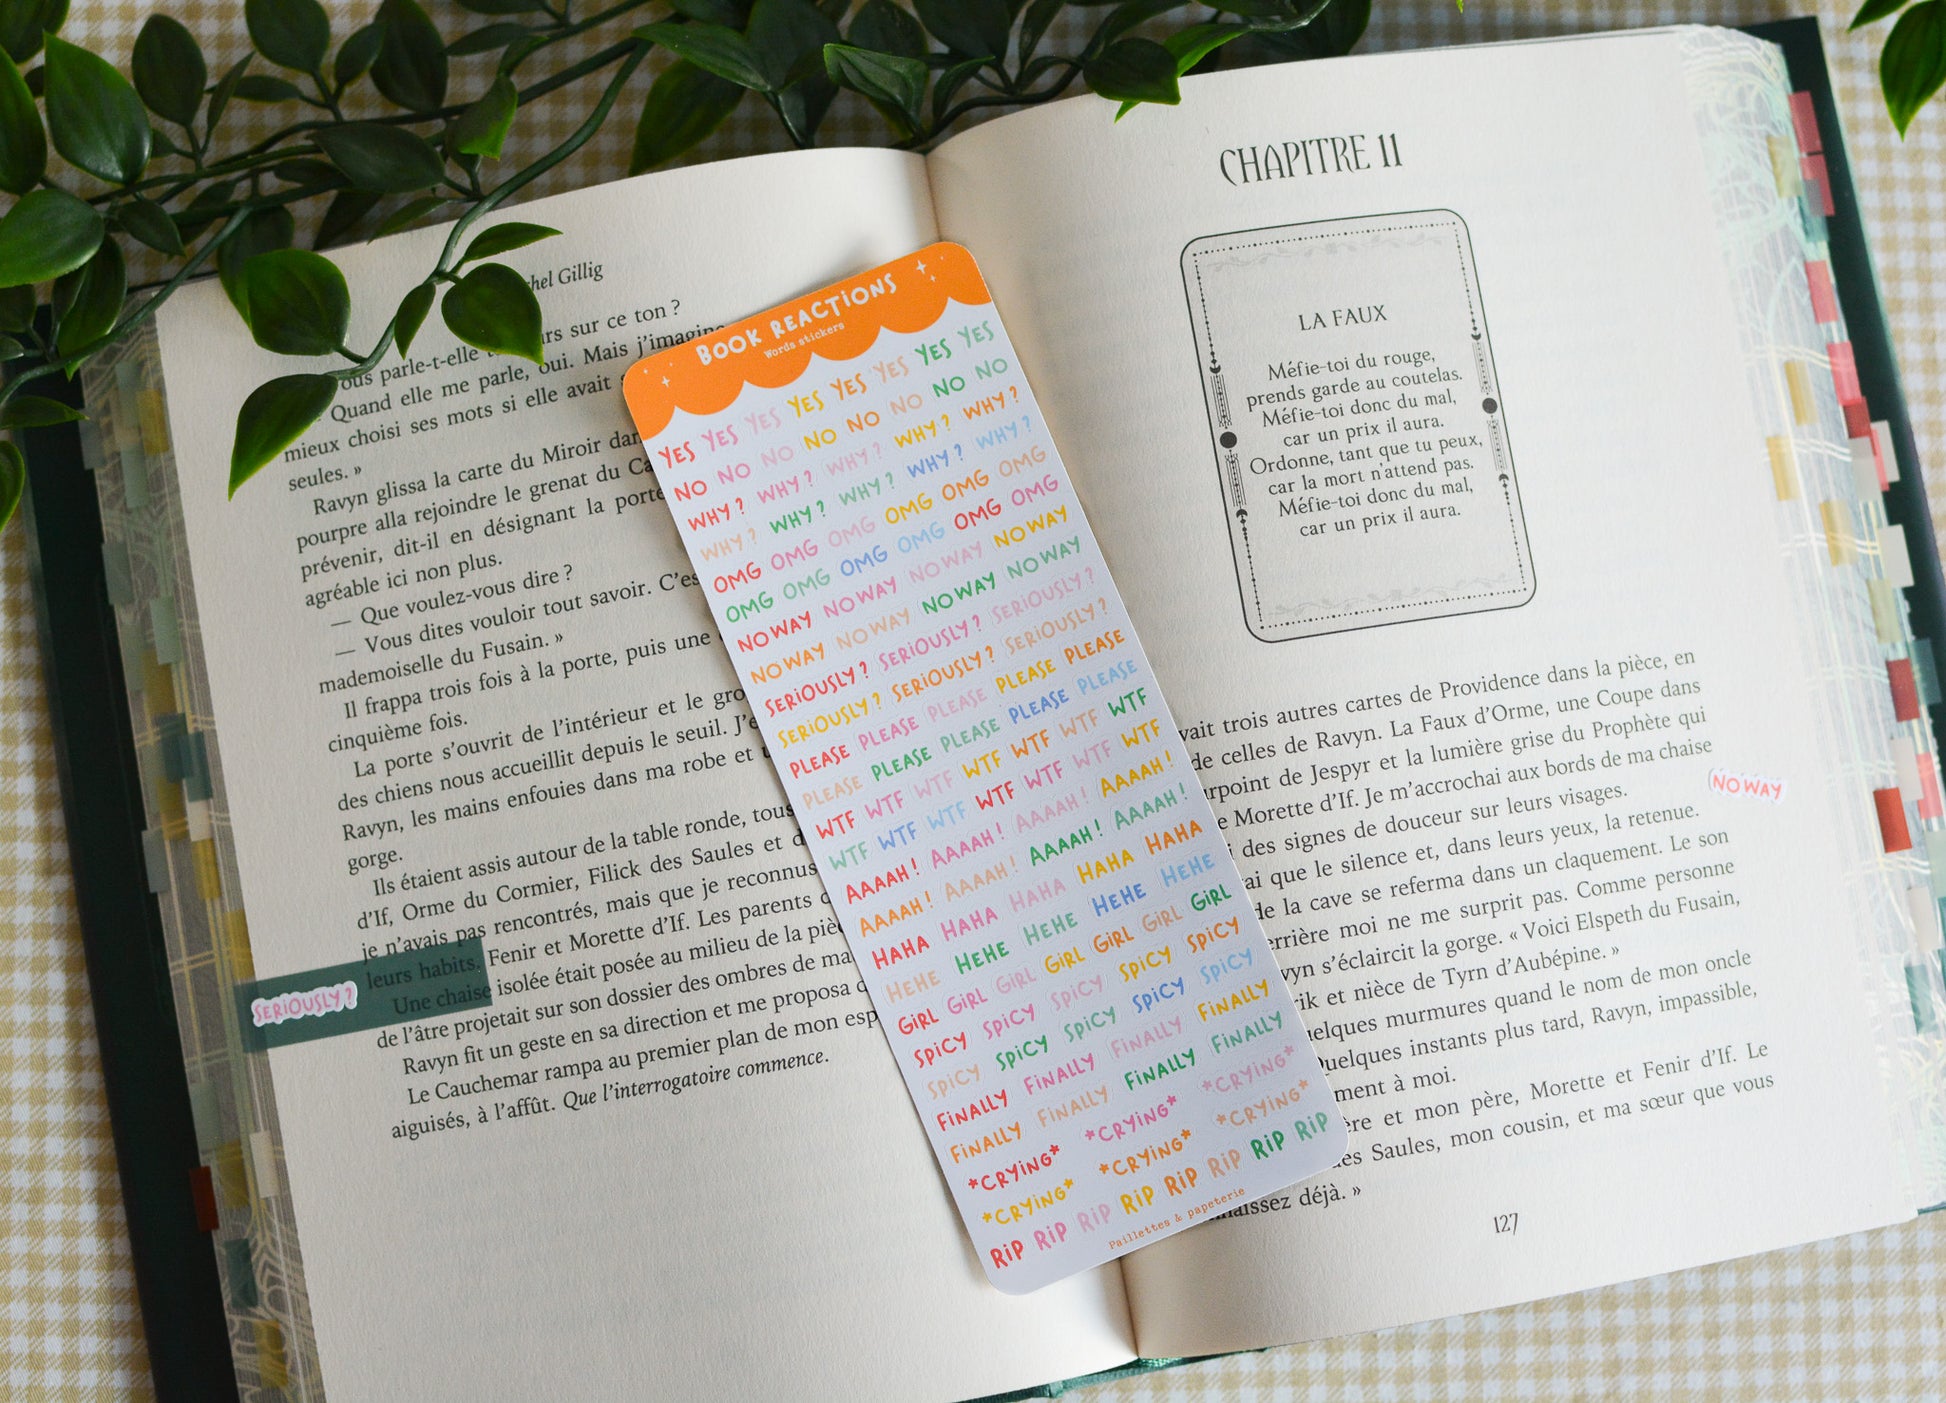 hel Gillig
ous parle-t-elle rs sur ce ton ?
Quand elle me parle, oui. Mais j'imagine
mieux choisi ses mots si elle avait
seules. »
Ravyn glissa la carte du Miroir dan
pourpre alla rejoindre le grenat du Ca
prévenir, dit-il en désignant la porte
agréable ici non plus.
— Que voulez-vous dire ?
— Vous dites vouloir tout savoir. C'es
mademoiselle du Fusain. »
Il frappa trois fois à la porte, puis une
cinquième fois.
La porte s'ouvrit de l'intérieur et le gro
des chiens nous accueillit depuis le seuil. J'e
Ravyn, les mains enfouies dans ma robe et
gorge.
Ils étaient assis autour de la table ronde, tous
d'If, Orme du Cormier, Filick des Saules et d
je n'avais pas rencontrés, mais que je reconnus
leurs habits, Fenir et Morette d'If. Les parents
Une chaise isolée était posée au milieu de la piè
de l'âtre projetait sur son dossier des ombres de ma
Ravyn fit un geste en sa direction et me proposa
Le Cauchemar rampa au premier plan de mon esp
aiguisés, à l'affût. Que l'interrogatoire commence.
SERIOUSLY?
BOOK REACTIONS
Words stickers
YES YES YES YES YES YES YES YES
NO NO NO NO NO NO NO NO
WHY? WHY? WHY? WHY? WHY?
WHY? WHY? WHY? WHY? WHY?
OMG OMG OMG OMG OMG OMG
OMG OMG OMG OMG OMG OMG
NO WAY NO WAY NO WAY NO WAY
NO WAY NO WAY NO WAY NO WAY
SERIOUSLY? SERIOUSLY? SERIOUSLY?
SERIOUSLY? SERIOUSLY? SERIOUSLY?
PLEASE PLEASE PLEASE PLEASE PLEASE
PLEASE PLEASE PLEASE PLEASE PLEASE
WTF WTF WTF WTF WTF WTF WTF
WTF WTF WTF WTF WTF WTF WTF
AAAAH! AAAAH! AAAAH! AAAAH!
AAAAH! AAAAH! AAAAH! AAAAH!
HAHA HAHA HAHA HAHA HAHA
HEHE HEHE HEHE HEHE HEHE
GIRL GIRL GIRL GIRL GIRL GIRL GIRL
SPICY SPICY SPICY SPICY SPICY
SPICY SPICY SPICY SPICY SPICY
FINALLY FINALLY FINALLY FINALLY
FINALLY FINALLY FINALLY FINALLY
*CRYING* *CRYING* *CRYING*
*CRYING* *CRYING* *CRYING*
RIP RIP RIP RIP RIP RIP RIP RIP
Paillettes & papeterie
CHAPITRE 11
LA FAUX
Méfie-toi du rouge,
prends garde au coutelas.
Méfie-toi donc du mal,
car un prix il aura.
Ordonne, tant que tu peux,
car la mort n'attend pas.
Méfie-toi donc du mal,
car un prix il aura.
vait trois autres cartes de Providence dans la pièce, en
de celles de Ravyn. La Faux d'Orme, une Coupe dans
urpoint de Jespyr et la lumière grise du Prophète qui
e Morette d'If. Je m'accrochai aux bords de ma chaise
i des signes de douceur sur leurs visages.
ai que le silence et, dans leurs yeux, la retenue.
de la cave se referma dans un claquement. Le son
errière moi ne me surprit pas. Comme personne
vyn s'éclaircit la gorge. « Voici Elspeth du Fusain,
rik et nièce de Tyrn d'Aubépine. »
uelques murmures quand le nom de mon oncle
Quelques instants plus tard, Ravyn, impassible,
ment à moi.
ère et mon père, Morette et Fenir d'If. Le
des Saules, mon cousin, et ma sœur que vous
naissez déjà. »
NO WAY
127